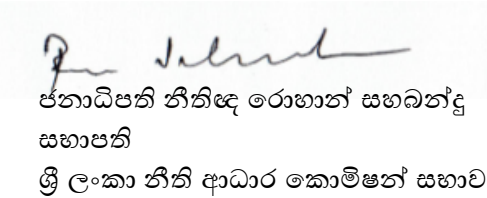 ජනාධිපති නීතිඥ රොහාන් සහබන්දු
සභාපති
ශ්‍රී ලංකා නීති ආධාර කොමිෂන් සභාව